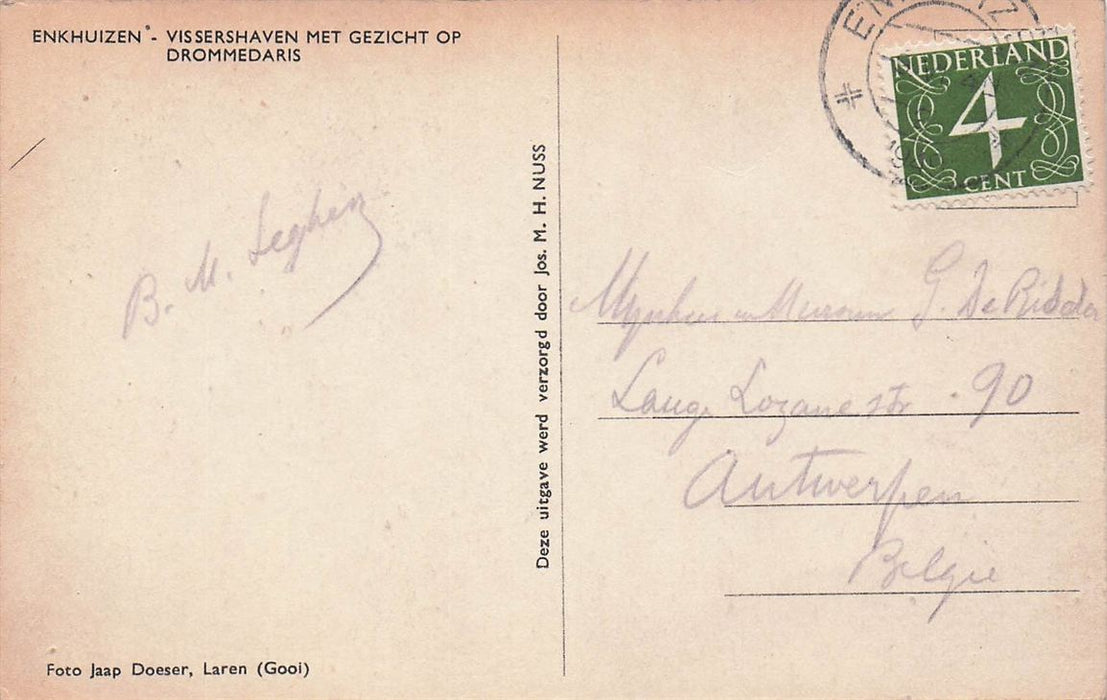 ENKHUIZEN - VISSERSHAVEN MET GEZICHT OP
DROMMEDARIS
B. M. Leghin
Foto Jaap Doeser, Laren (Gooi)
Deze uitgave werd verzorgd door Jos. M. H. NUSS
NEDERLAND
4
CENT
Mijnheer en Mevrouw G. De Ridder
Lange Lozane str 90
Antwerpen
Belgie